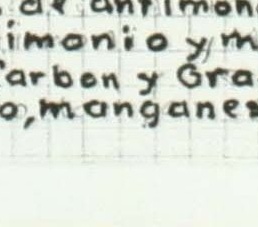 de antimon
imonio y m
arbon y Gra
o, manganes